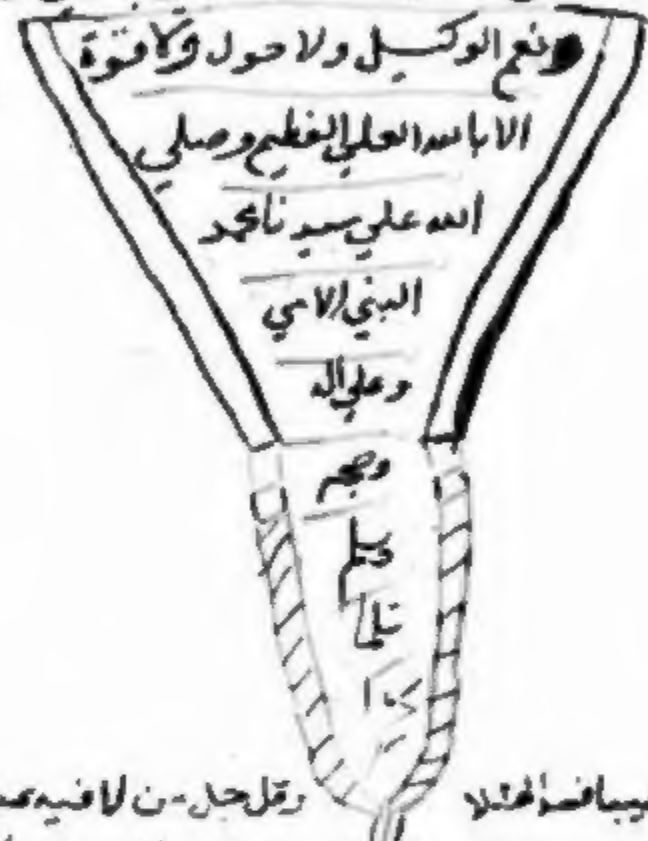 ونعم الوكيل ولا حول ولا قوة
الا بالله العلي العظيم وصلي
الله علي سيدنا محمد
النبي الامي
وعلي آله
وصحبه
وسلم
تسليما
كثيرا
وقل جل من لا فيه